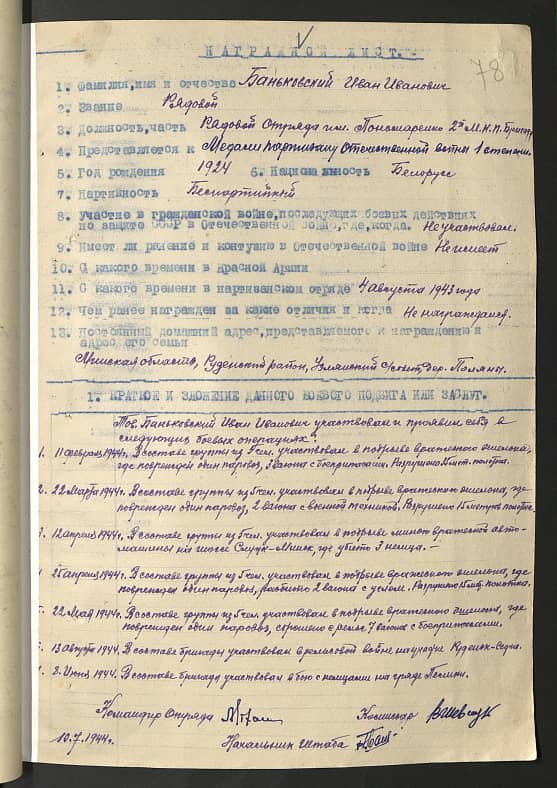 78
НАГРАДНОЙ ЛИСТ.
1. Фамилия, имя и отчество Баньковский Иван Иванович
2. Звание Рядовой
3. Должность, часть Рядовой Отряда им. Пономаренко 2й М.К.П. Бригады
4. Представляется к Медали партизану Отечественной войны 1 степени.
5. Год рождения 1924 6. Национальность Белорус
7. Партийность Беспартийный
8. Участие в гражданской войне, последующих боевых действиях
по защите СССР в Отечественной войне, где, когда. Не участвовал.
9. Имеет ли ранение и контузию в Отечественной войне Не имеет
10. С какого времени в Красной Армии
11. С какого времени в партизанском отряде 4 августа 1943 года
12. Чем ранее награжден за какие отличия и когда Не награждался.
13. Постоянный домашний адрес, представляемого к награждению и
адрес его семьи
Минская область, Руденский район, дер. Поляны.
1. КРАТКОЕ ИЗЛОЖЕНИЕ ДАННОГО БОЕВОГО ПОДВИГА ИЛИ ЗАСЛУГ.
Тов. Баньковский Иван Иванович участвовал и проявил себя в
следующих боевых операциях:
1. 11 февраля 1944г. В составе группы из 5 чел. участвовал в подрыве вражеского эшелона,
где поврежден один паровоз, 3 вагона с боеприпасами. Разрушено полотна.
2. 22 марта 1944г. В составе группы из 5 чел. участвовал в подрыве вражеского эшелона, где
поврежден один паровоз, 2 вагона с военной техникой. Разрушено 15 метров полотна.
3. 12 апреля 1944г. В составе группы из 5 чел. участвовал в подрыве миной вражеской авто-
машины на шоссе Слуцк-Минск, где убито 3 немца. —
25 апреля 1944г. В составе группы из 5 чел. участвовал в подрыве вражеского эшелона, где
поврежден один паровоз, разбито 2 вагона с углем. Разрушено полотна.
22 Мая 1944г. В составе группы из 5 чел. участвовал в подрыве вражеского эшелона, где
поврежден один паровоз, сброшено с рельс 7 вагонов с боеприпасами.
13 августа 1944г. В составе бригады участвовал в рельсовой войне на участке
2. Июня 1944г. В составе бригады участвовал в бою с немцами на
Командир Отряда Комиссар В Шевчук
10.7.1944г. Начальник Штаба